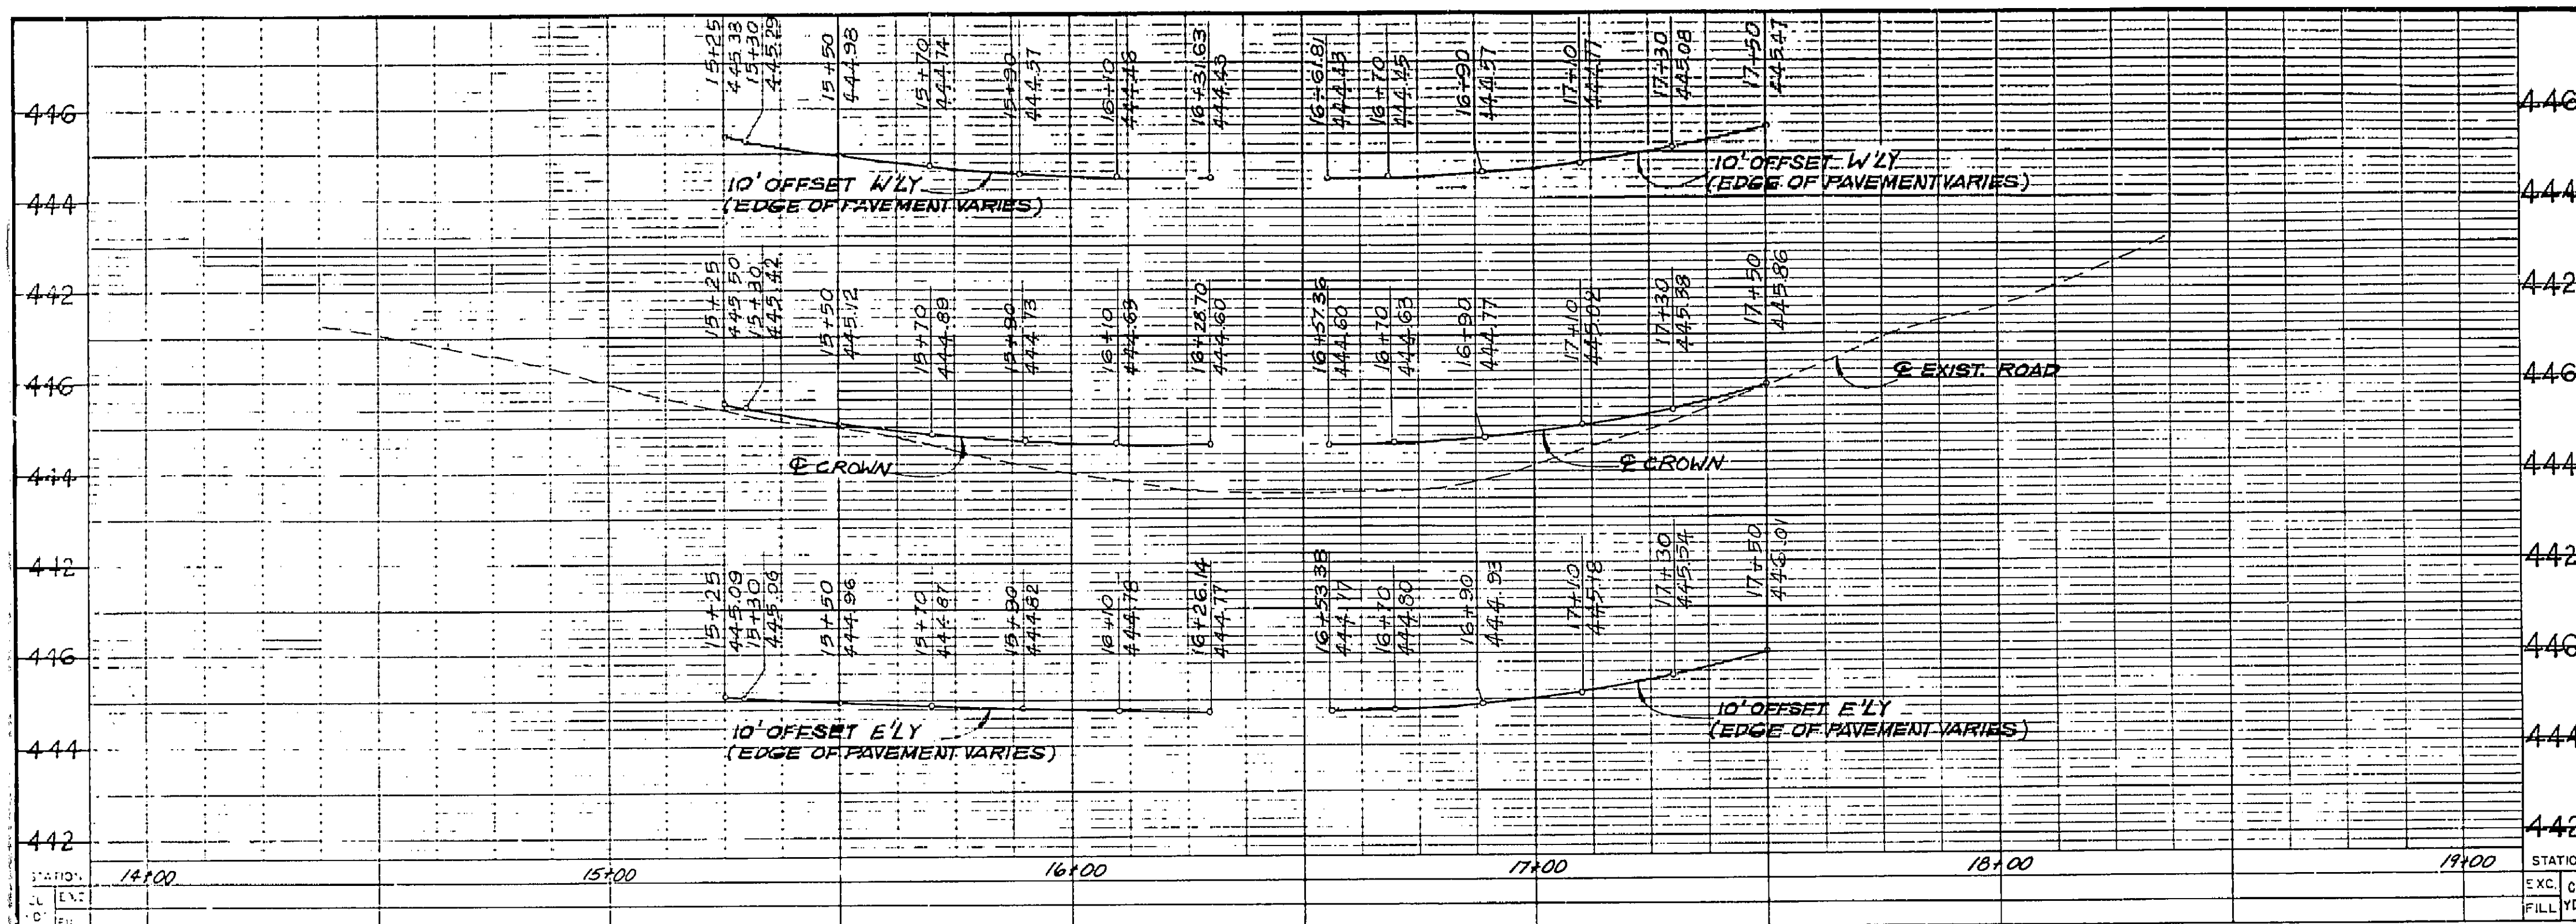 15+25
445.33
15+30
445.29
15+50
444.98
15+70
444.74
15+90
444.57
16+10
444.46
16+31.63
444.43
16+61.81
444.43
16+70
444.45
16+90
444.57
17+10
444.77
17+30
445.08
17+50
445.47
446
446
10' OFFSET W'LY
(EDGE OF PAVEMENT VARIES)
10' OFFSET W'LY
(EDGE OF PAVEMENT VARIES)
444
444
15+25
445.50
15+30
445.42
15+50
445.12
15+70
444.89
15+90
444.73
16+10
444.63
16+28.70
444.60
16+57.36
444.60
16+70
444.63
16+90
444.77
17+10
445.02
17+30
445.38
17+50
445.86
442
442
℄ EXIST. ROAD
446
446
℄ CROWN
℄ CROWN
444
444
15+25
445.09
15+30
445.06
15+50
444.96
15+70
444.87
15+90
444.82
16+10
444.78
16+26.14
444.77
16+53.38
444.77
16+70
444.80
16+90
444.93
17+10
445.18
17+30
445.54
17+50
446.01
442
442
446
446
10' OFFSET E'LY
(EDGE OF PAVEMENT VARIES)
10' OFFSET E'LY
(EDGE OF PAVEMENT VARIES)
444
444
442
442
14+00 15+00 16+00 17+00 18+00 19+00
EXC.
FILL